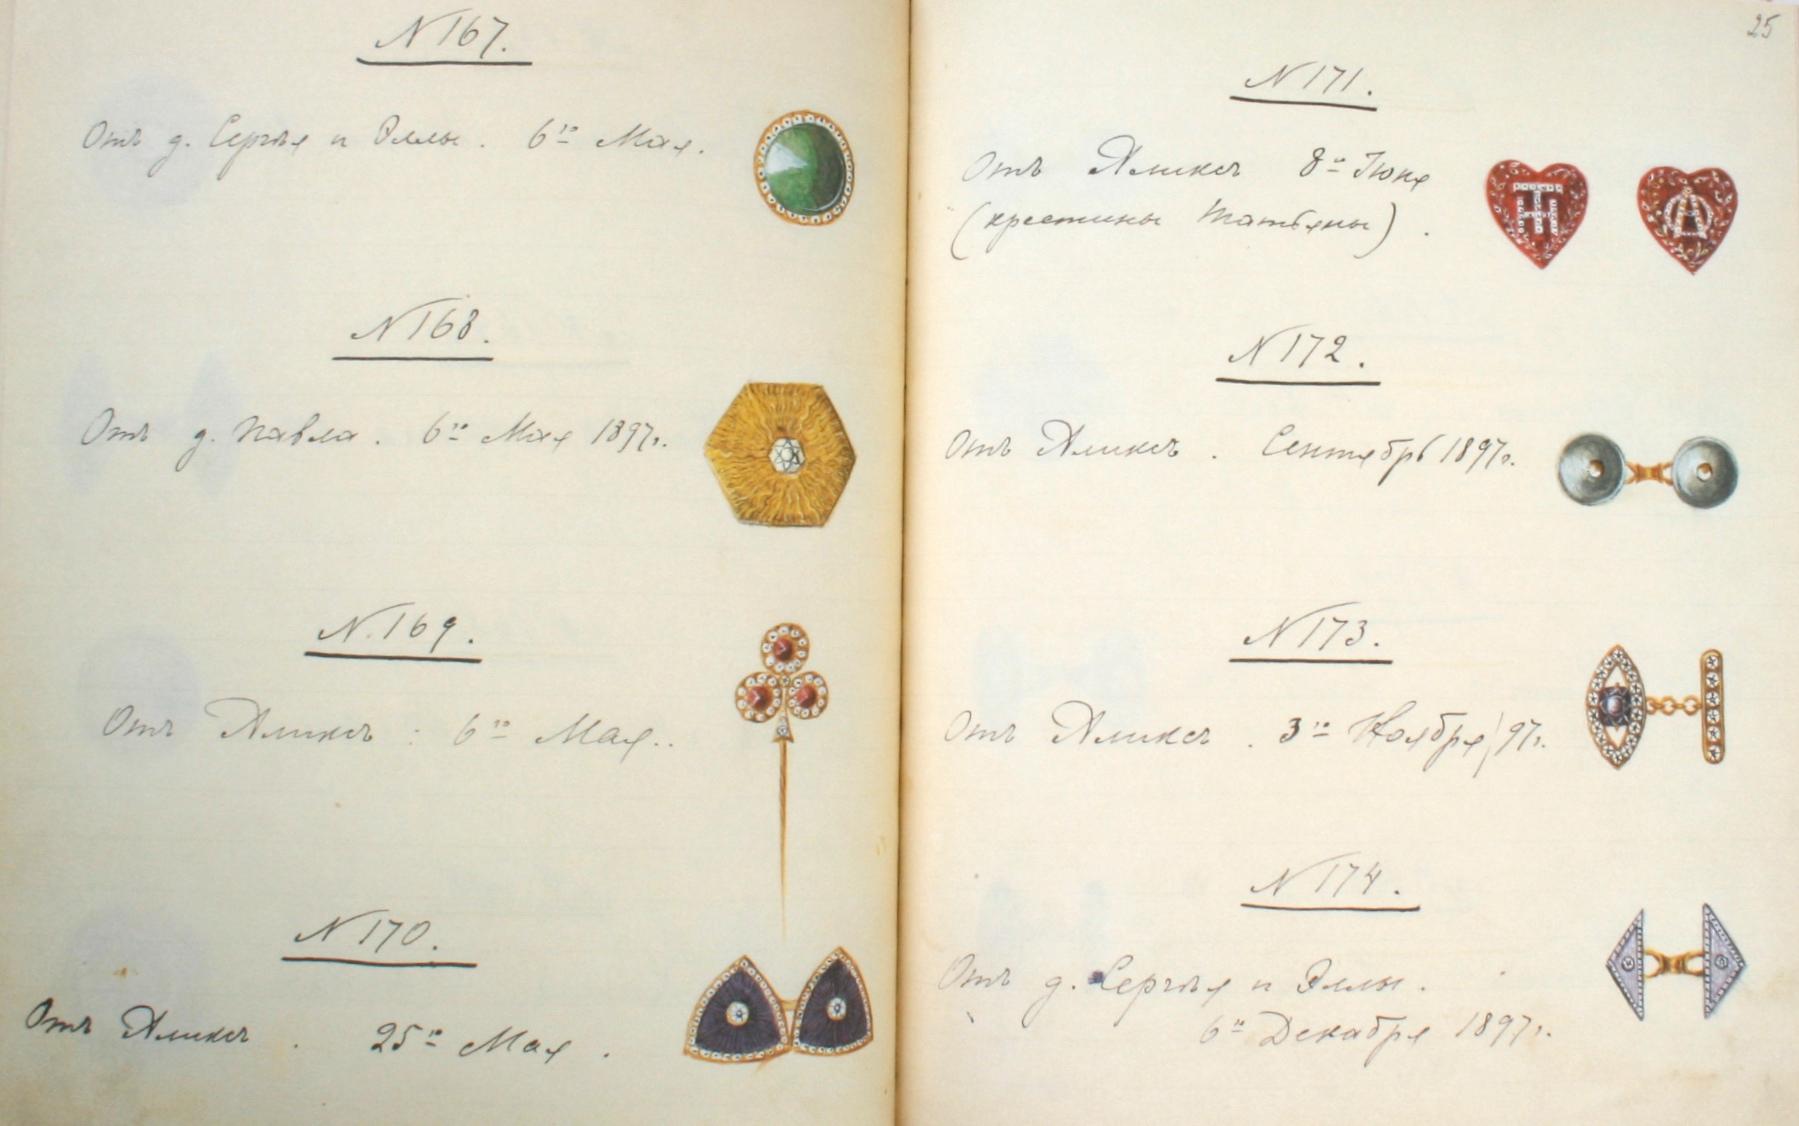 N 167.
Отъ д. Сергѣя и Эллы. 6го Мая.
N 168.
Отъ д. Павла. 6го Мая 1897г.
N. 169.
Отъ Аликсъ. 6го Мая.
N 170.
Отъ Аликсъ. 25го Мая.
25
N 171.
Отъ Аликсъ 8го Іюня
(крестины Татьяны).
Т
А
N 172.
Отъ Аликсъ. Сентябрь 1897г.
N 173.
Отъ Аликсъ. 3го Ноября 97г.
N 174.
Отъ д. Сергѣя и Эллы.
6го Декабря 1897г.